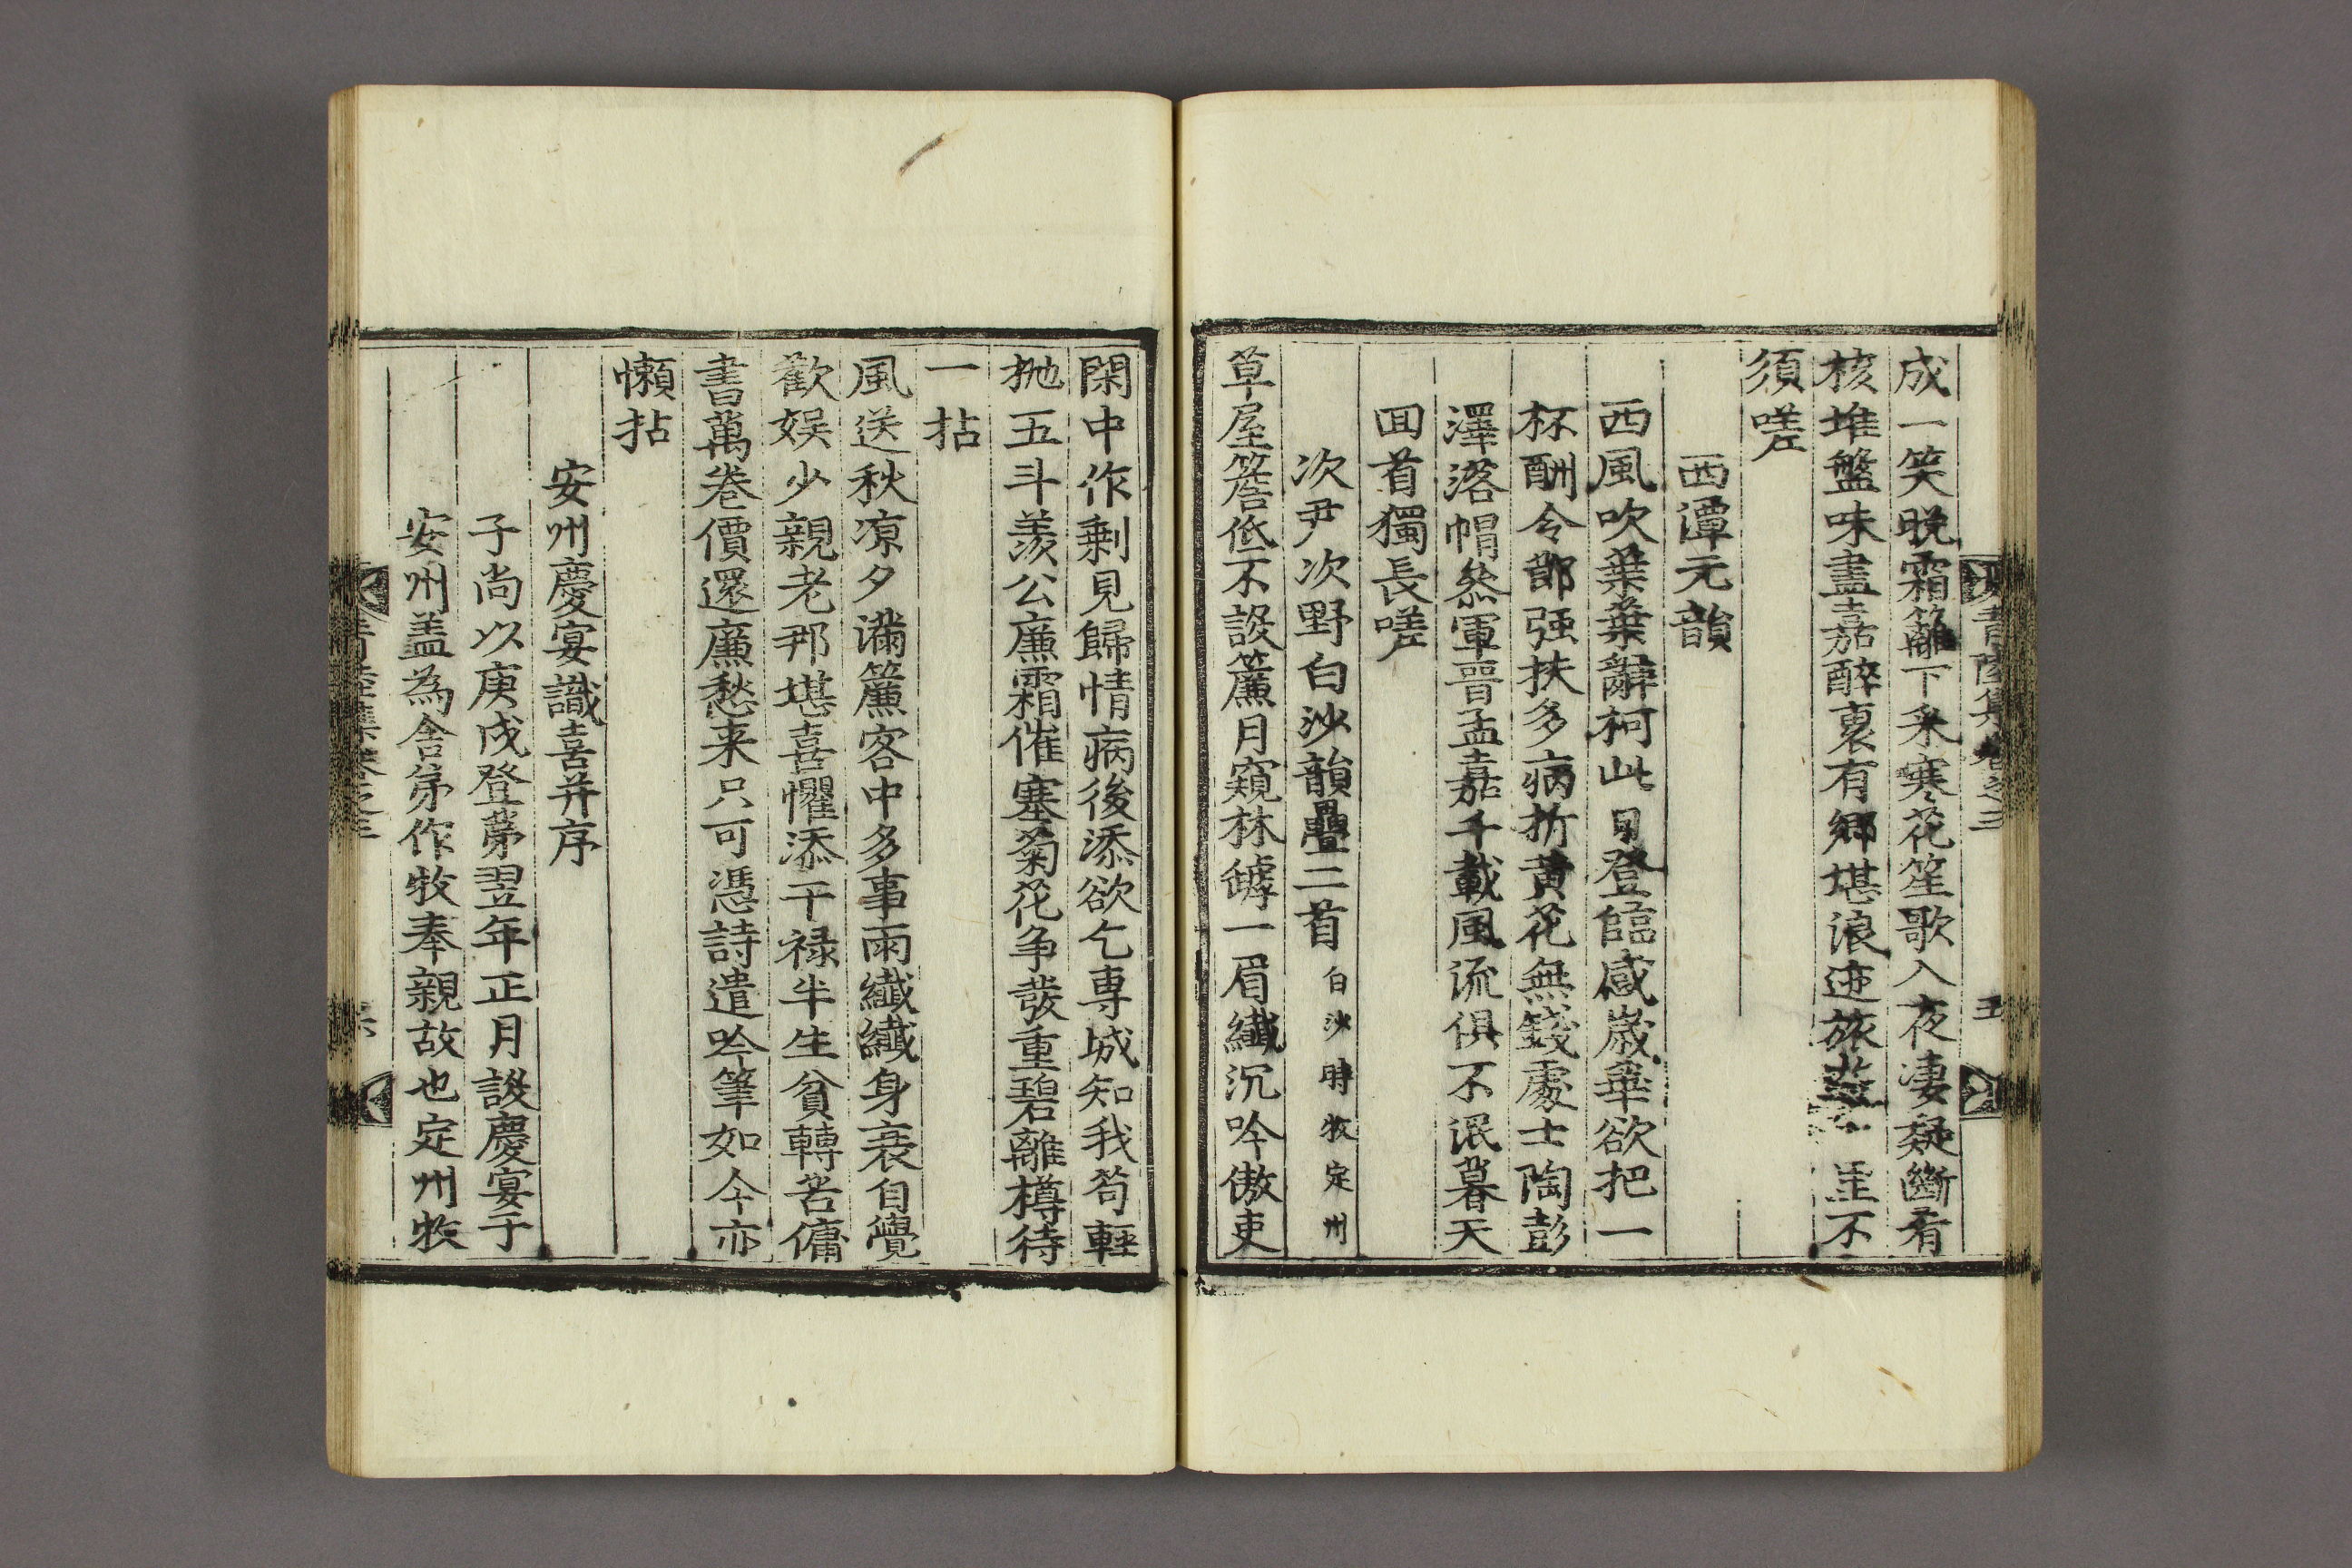 成一笑晩霜籬下采寒花笙歌入夜凄疑斷肴
核堆盤味盡嘉醉裏有鄉堪浪迹旅 不
須嗟
西潭元韻
西風吹葉葉辭柯此日登臨感歲華欲把一
杯酬令節强扶多病折黄花無錢處士陶彭
澤落帽叅軍晉孟嘉千載風流俱不泯暮天
回首獨長嗟
次尹次野白沙韻疊二首白沙時牧定州
草屋簷低不設簾月窺林罅一眉纖沉吟傲吏
青陸集卷之三
五
閑中作剩見歸情病後添欲乞專城知我苟輕
抛五斗羨公廉霜催塞菊花争發重碧離樽待
一拈
風送秋凉夕滿簾客中多事雨纖纖身衰自覺
歡娱少親老那堪喜懼添干禄半生貧轉苦傭
書萬卷價還廉愁来只可憑詩遣吟筆如今亦
懶拈
安州慶宴識喜并序
子尚以庚戌登第翌年正月設慶宴于
安州盖為舍弟作牧奉親故也定州牧
集卷之三
六